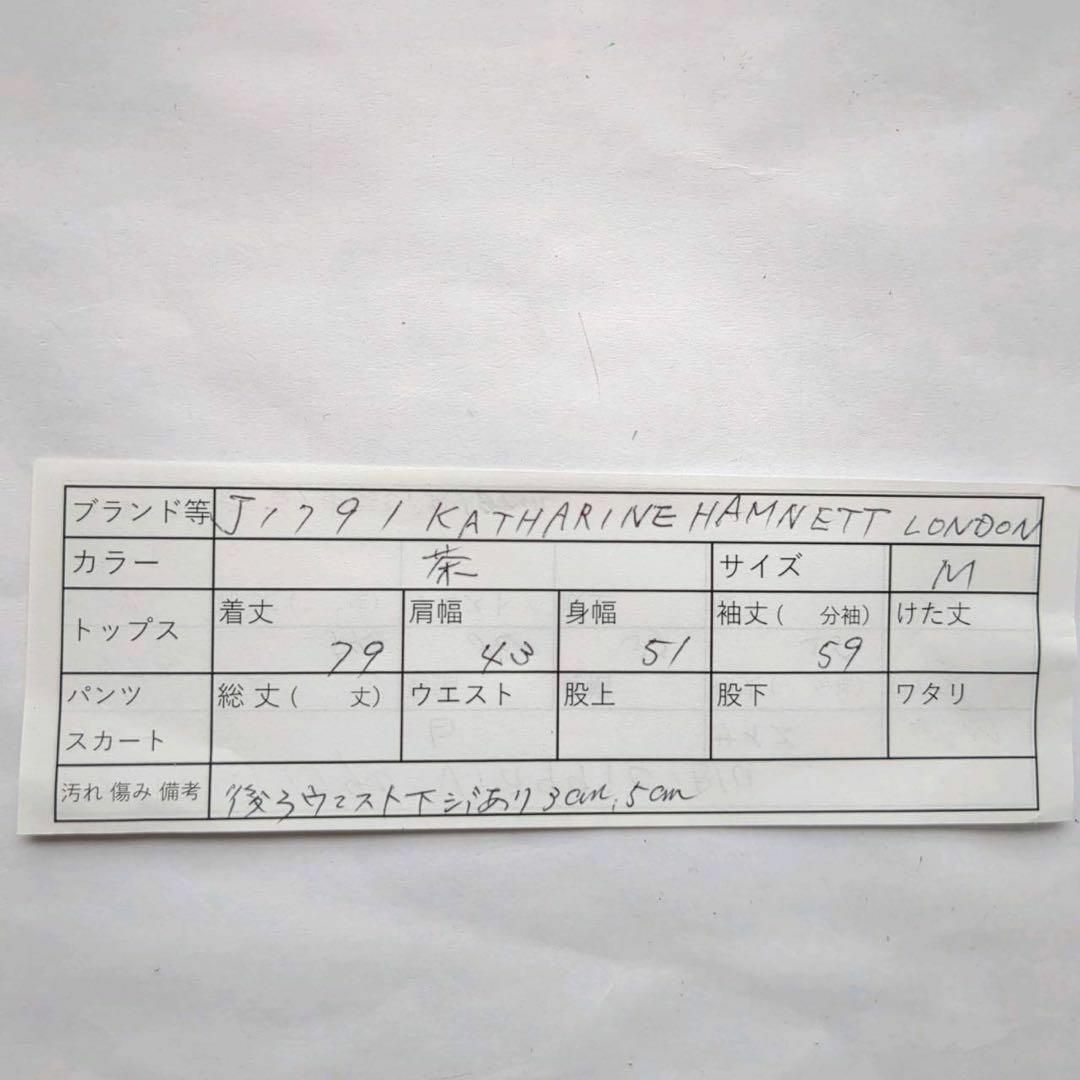 ブランド等 J1791 KATHARINE HAMNETT LONDON
カラー 茶 サイズ M
トップス 着丈 79 肩幅 43 身幅 51 袖丈( 分袖) 59 けた丈
パンツ スカート 総丈( 丈) ウエスト 股上 股下 ワタリ
汚れ 傷み 備考 後ろウエスト下シミあり3cm,5cm